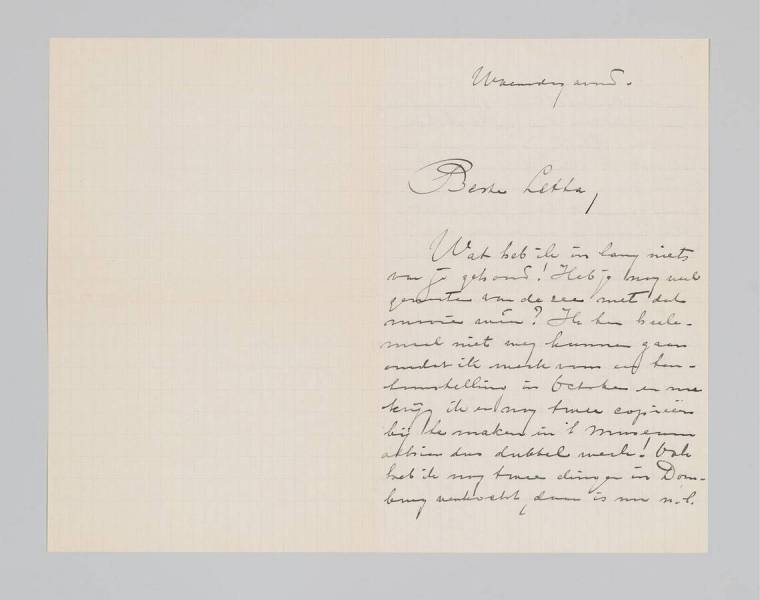 Woensdag avond.
Beste Letta,
Wat heb ik in lang niets
van je gehoord! Heb je nog veel
genoten van de zee met dat
mooie weer? Ik ben heele-
maal niet weg kunnen gaan
omdat ik werk voor een ten-
toonstelling in October en nu
krijg ik er nog twee copieën
bij te maken in 't Museum
dus dubbel werk! Ook
heb ik nog twee dingen in Dom-
burg verkocht, daar is nu n.l.